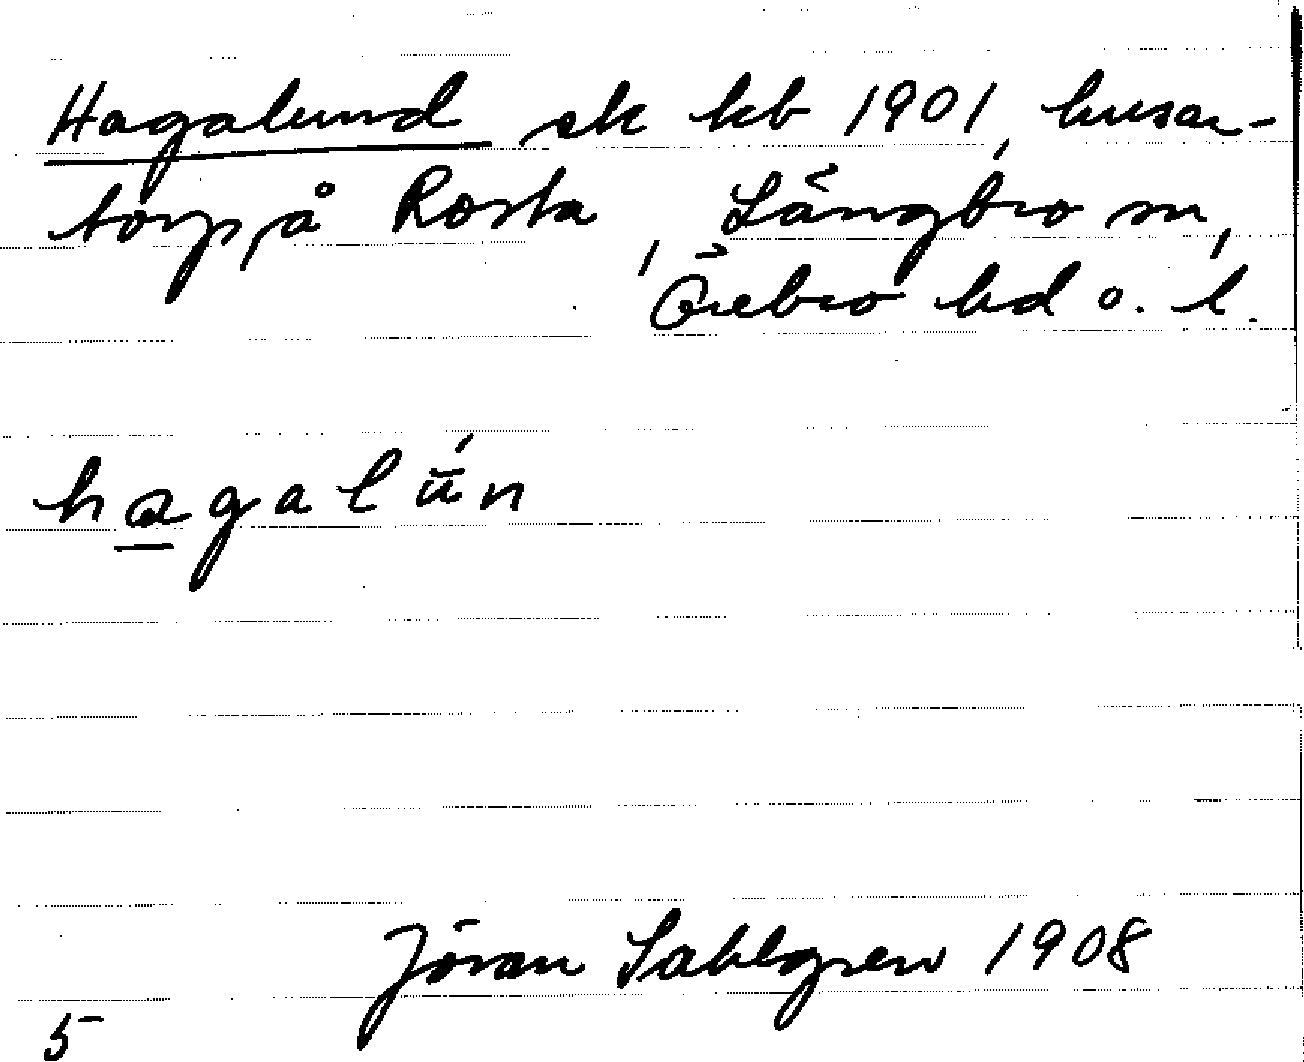 Hagalund sk kb 1901, husar-
torp å Rosta, Långbro sn,
Örebro hd o. l.
hagalū́n
Jöran Sahlgren 1908
5